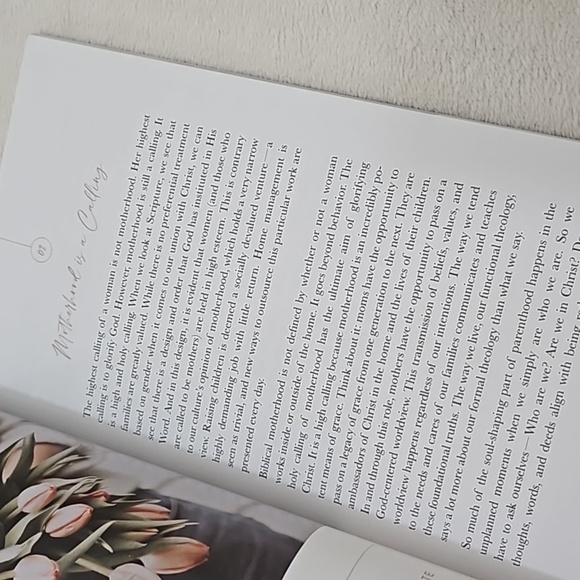 02
Motherhood is a Calling
The highest calling of a woman is not motherhood. Her highest
calling is to glorify God. However, motherhood is still a calling. It
is a high and holy calling. When we look at Scripture, we see that
families are greatly valued. While there is no preferential treatment
based on gender when it comes to our union with Christ, we can
see that there is a design and order that God has instituted in His
Word. And in this design, it is evident that women (and those who
are called to be mothers) are held in high esteem. This is contrary
to our culture's opinion of motherhood, which holds a very narrow
view. Raising children is deemed a socially devalued venture—a
highly demanding job with little return. Home management is
seen as trivial, and new ways to outsource this particular work are
presented every day.
Biblical motherhood is not defined by whether or not a woman
works inside or outside of the home. It goes beyond behavior. The
holy calling of motherhood has the ultimate aim of glorifying
Christ. It is a high calling because motherhood is an incredibly po-
tent means of grace. Think about it: moms have the opportunity to
pass on a legacy of grace from one generation to the next. They are
ambassadors of Christ in the home and the lives of their children.
In and through this role, mothers have the opportunity to pass on a
God-centered worldview. This transmission of beliefs, values, and
worldview happens regardless of our intentions. The way we tend
to the needs and cares of our families communicates and teaches
these foundational truths. The way we live, our functional theology,
says a lot more about our formal theology than what we say.
So much of the soul-shaping part of parenthood happens in the
unplanned moments when we simply are who we are. So we
have to ask ourselves—Who are we? Are we in Christ? Do
thoughts, words, and deeds align with being